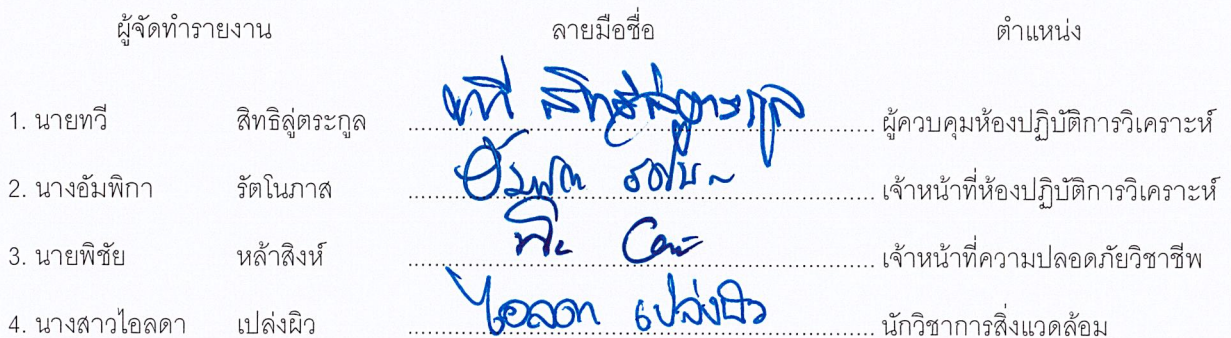 ผู้จัดทำรายงาน ลายมือชื่อ ตำแหน่ง
1. นายทวี สิทธิสู่ตระกูล ทวี สิทธิสู่ตระกูล ผู้ควบคุมห้องปฏิบัติการวิเคราะห์
2. นางอัมพิกา รัตโนภาส เจ้าหน้าที่ห้องปฏิบัติการวิเคราะห์
3. นายพิชัย หล้าสิงห์ เจ้าหน้าที่ความปลอดภัยวิชาชีพ
4. นางสาวไอลดา เปล่งผิว ไอลดา เปล่งผิว นักวิชาการสิ่งแวดล้อม